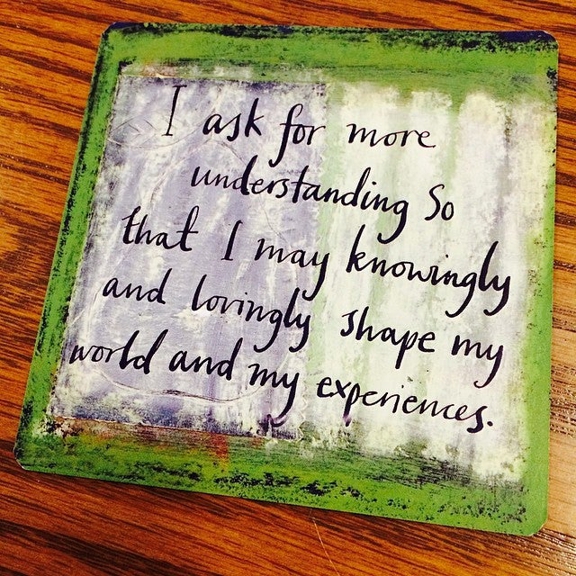 I ask for more
understanding So
that I may knowingly
and lovingly shape my
world and my experiences.